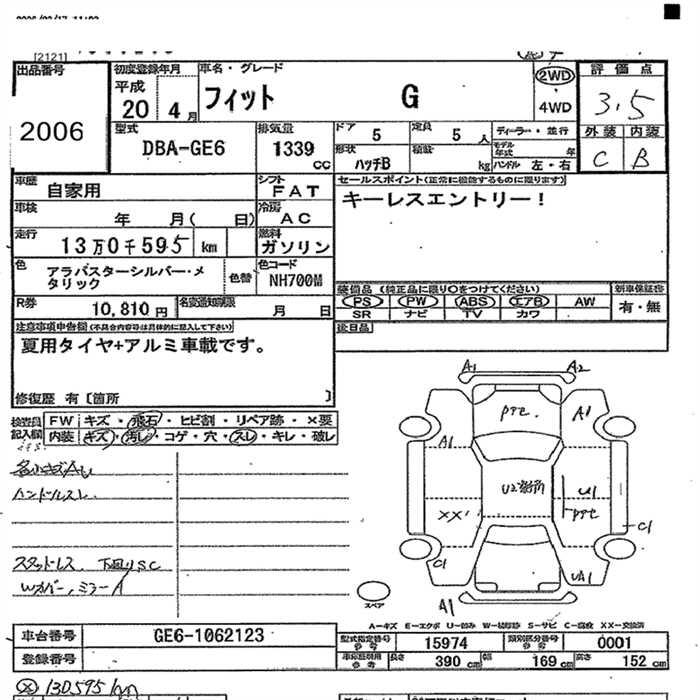 [2121]
出品番号 初度登録年月 車名・グレード 評価点
2006 平成 20 4月 フィット G 2WD 4WD 3.5
外装 内装
C B
型式 排気量 ドア 5 定員 5人 ディーラー・並行
DBA-GE6 1339cc 形状 ハッチB 積載 kg モデル年式 年 ハンドル 左・右
車歴 自家用 シフト FAT セールスポイント(正常に機能するものに限ります)
キーレスエントリー!
車検 年 月( 日) 冷房 AC
走行 13万0千595 km 燃料 ガソリン
色 アラバスターシルバー・メタリック 色替 色コード NH700M
装備品 (純正品に限り○をつけてください) 新車保証書
PS PW ABS エアB AW 有・無
SR ナビ TV カワ
R券 10,810円 名変通知期限 月 日
後日品
注意事項申告欄(不具合内容等は具体的に記入して下さい)
夏用タイヤ+アルミ車載です。
修復歴 有〔箇所 〕
検査員記入欄 FW キズ・飛石・ヒビ割・リペア跡・×要
内装 キズ・汚レ・コゲ・穴・スレ・キレ・破レ
ハンドルスレ
スタッドレス 下回りSC
Wカバー、ミラーA
A1 A2
A1 A1
U1
XX
C1 C1
UA1
A1
スペア
A-キズ E-エクボ U-凹み W-補修跡 S-サビ C-腐食 XX-交換済
車台番号 GE6-1062123 型式指定番号参考 15974 類別区分番号参考 0001
登録番号 車体形状用参考 長さ 390cm 幅 169cm 高さ 152cm
130595km